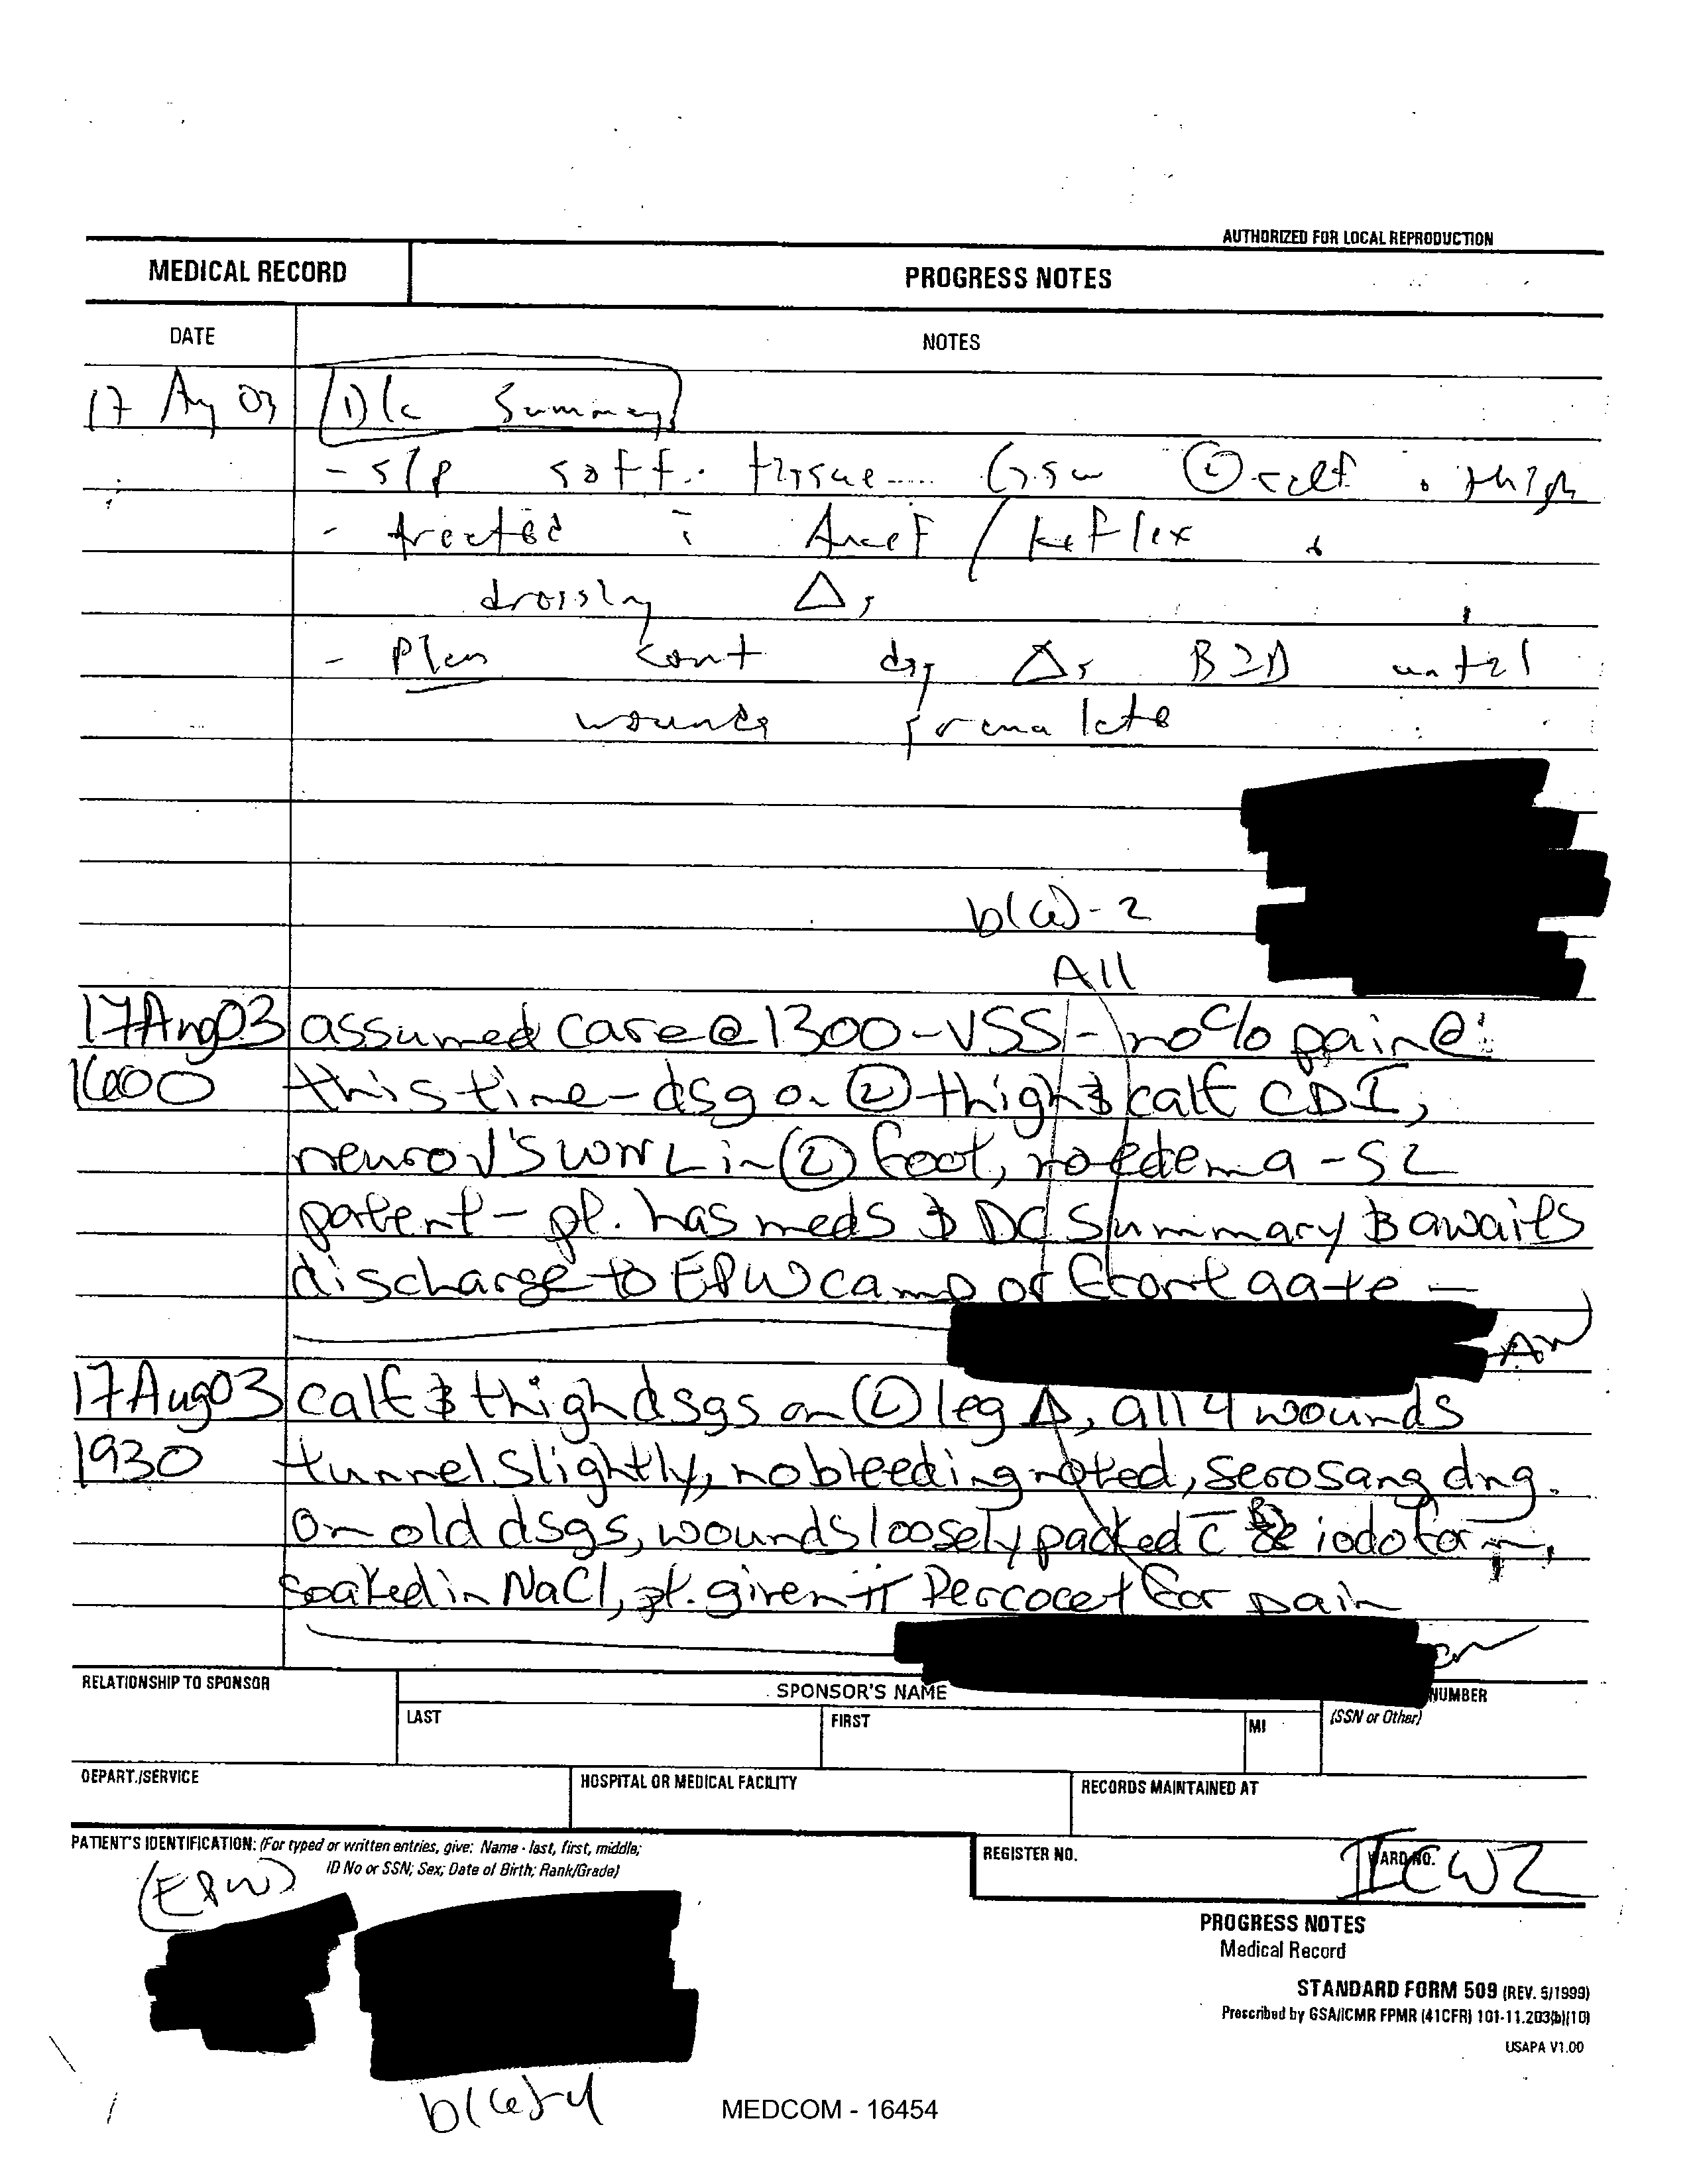 AUTHORIZED FOR LOCAL REPRODUCTION
MEDICAL RECORD
PROGRESS NOTES
DATE
NOTES
17 Aug 03 D/c Summary
- s/p soft tissue GSW Ⓛ calf + thigh
- treated c̄ Ancef / Keflex +
dressing Δs
- Plan cont dsg Δs BID until
wounds granulate
b(6)-2
All
17Aug03 assumed care @ 1300 - VSS - no c/o pain @
1600 this time - dsg on Ⓛ thigh & calf CDI,
neuro √'s WNL in Ⓛ foot, no edema - SL
patent - pt. has meds & DC Summary & awaits
discharge to EPW camp or front gate -
AN
17Aug03 calf & thigh dsgs on Ⓛ leg Δ, all 4 wounds
1930 tunnel slightly, no bleeding noted, serosang dng.
on old dsgs, wounds loosely packed c̄ iodoform,
soaked in NaCl, pt. given ii Percocet for pain
RELATIONSHIP TO SPONSOR
SPONSOR'S NAME
NUMBER
LAST
FIRST
MI
(SSN or Other)
DEPART./SERVICE
HOSPITAL OR MEDICAL FACILITY
RECORDS MAINTAINED AT
PATIENT'S IDENTIFICATION: (For typed or written entries, give: Name - last, first, middle;
ID No or SSN; Sex; Date of Birth; Rank/Grade)
REGISTER NO.
WARD NO.
ICW2
(EPW)
PROGRESS NOTES
Medical Record
STANDARD FORM 509 (REV. 5/1999)
Prescribed by GSA/ICMR FPMR (41CFR) 101-11.203(b)(10)
USAPA V1.00
b(6)-4
MEDCOM - 16454